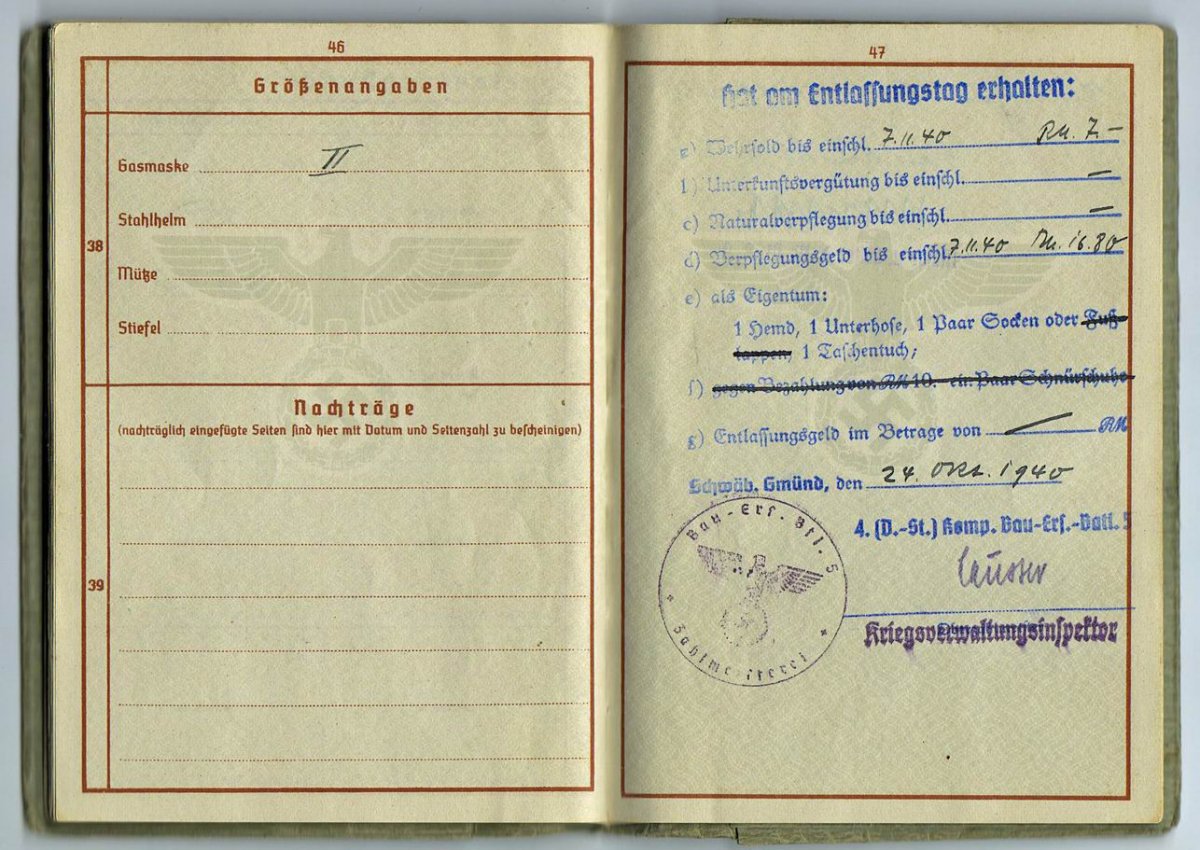 46
Größenangaben
38
Gasmaske II
Stahlhelm
Mütze
Stiefel
Nachträge
(nachträglich eingefügte Seiten sind hier mit Datum und Seitenzahl zu bescheinigen)
39
47
Hat am Entlassungstag erhalten:
a) Wehrsold bis einschl. 7.11.40 RM. 7.–
b) Unterkunftsvergütung bis einschl. –
c) Naturalverpflegung bis einschl. –
d) Verpflegungsgeld bis einschl. 7.11.40 RM. 16.80
e) als Eigentum:
1 Hemd, 1 Unterhose, 1 Paar Socken oder Fuß-
lappen, 1 Taschentuch;
f) gegen Bezahlung von RM 10.– ein Paar Schnürschuhe
g) Entlassungsgeld im Betrage von – RM
Schwäb. Gmünd, den 24. Okt. 1940
4. (D.-St.) Komp. Bau-Ers.-Batl. 5
Bau-Ers. Btl. 5
Zahlmeisterei
Kriegsverwaltungsinspektor